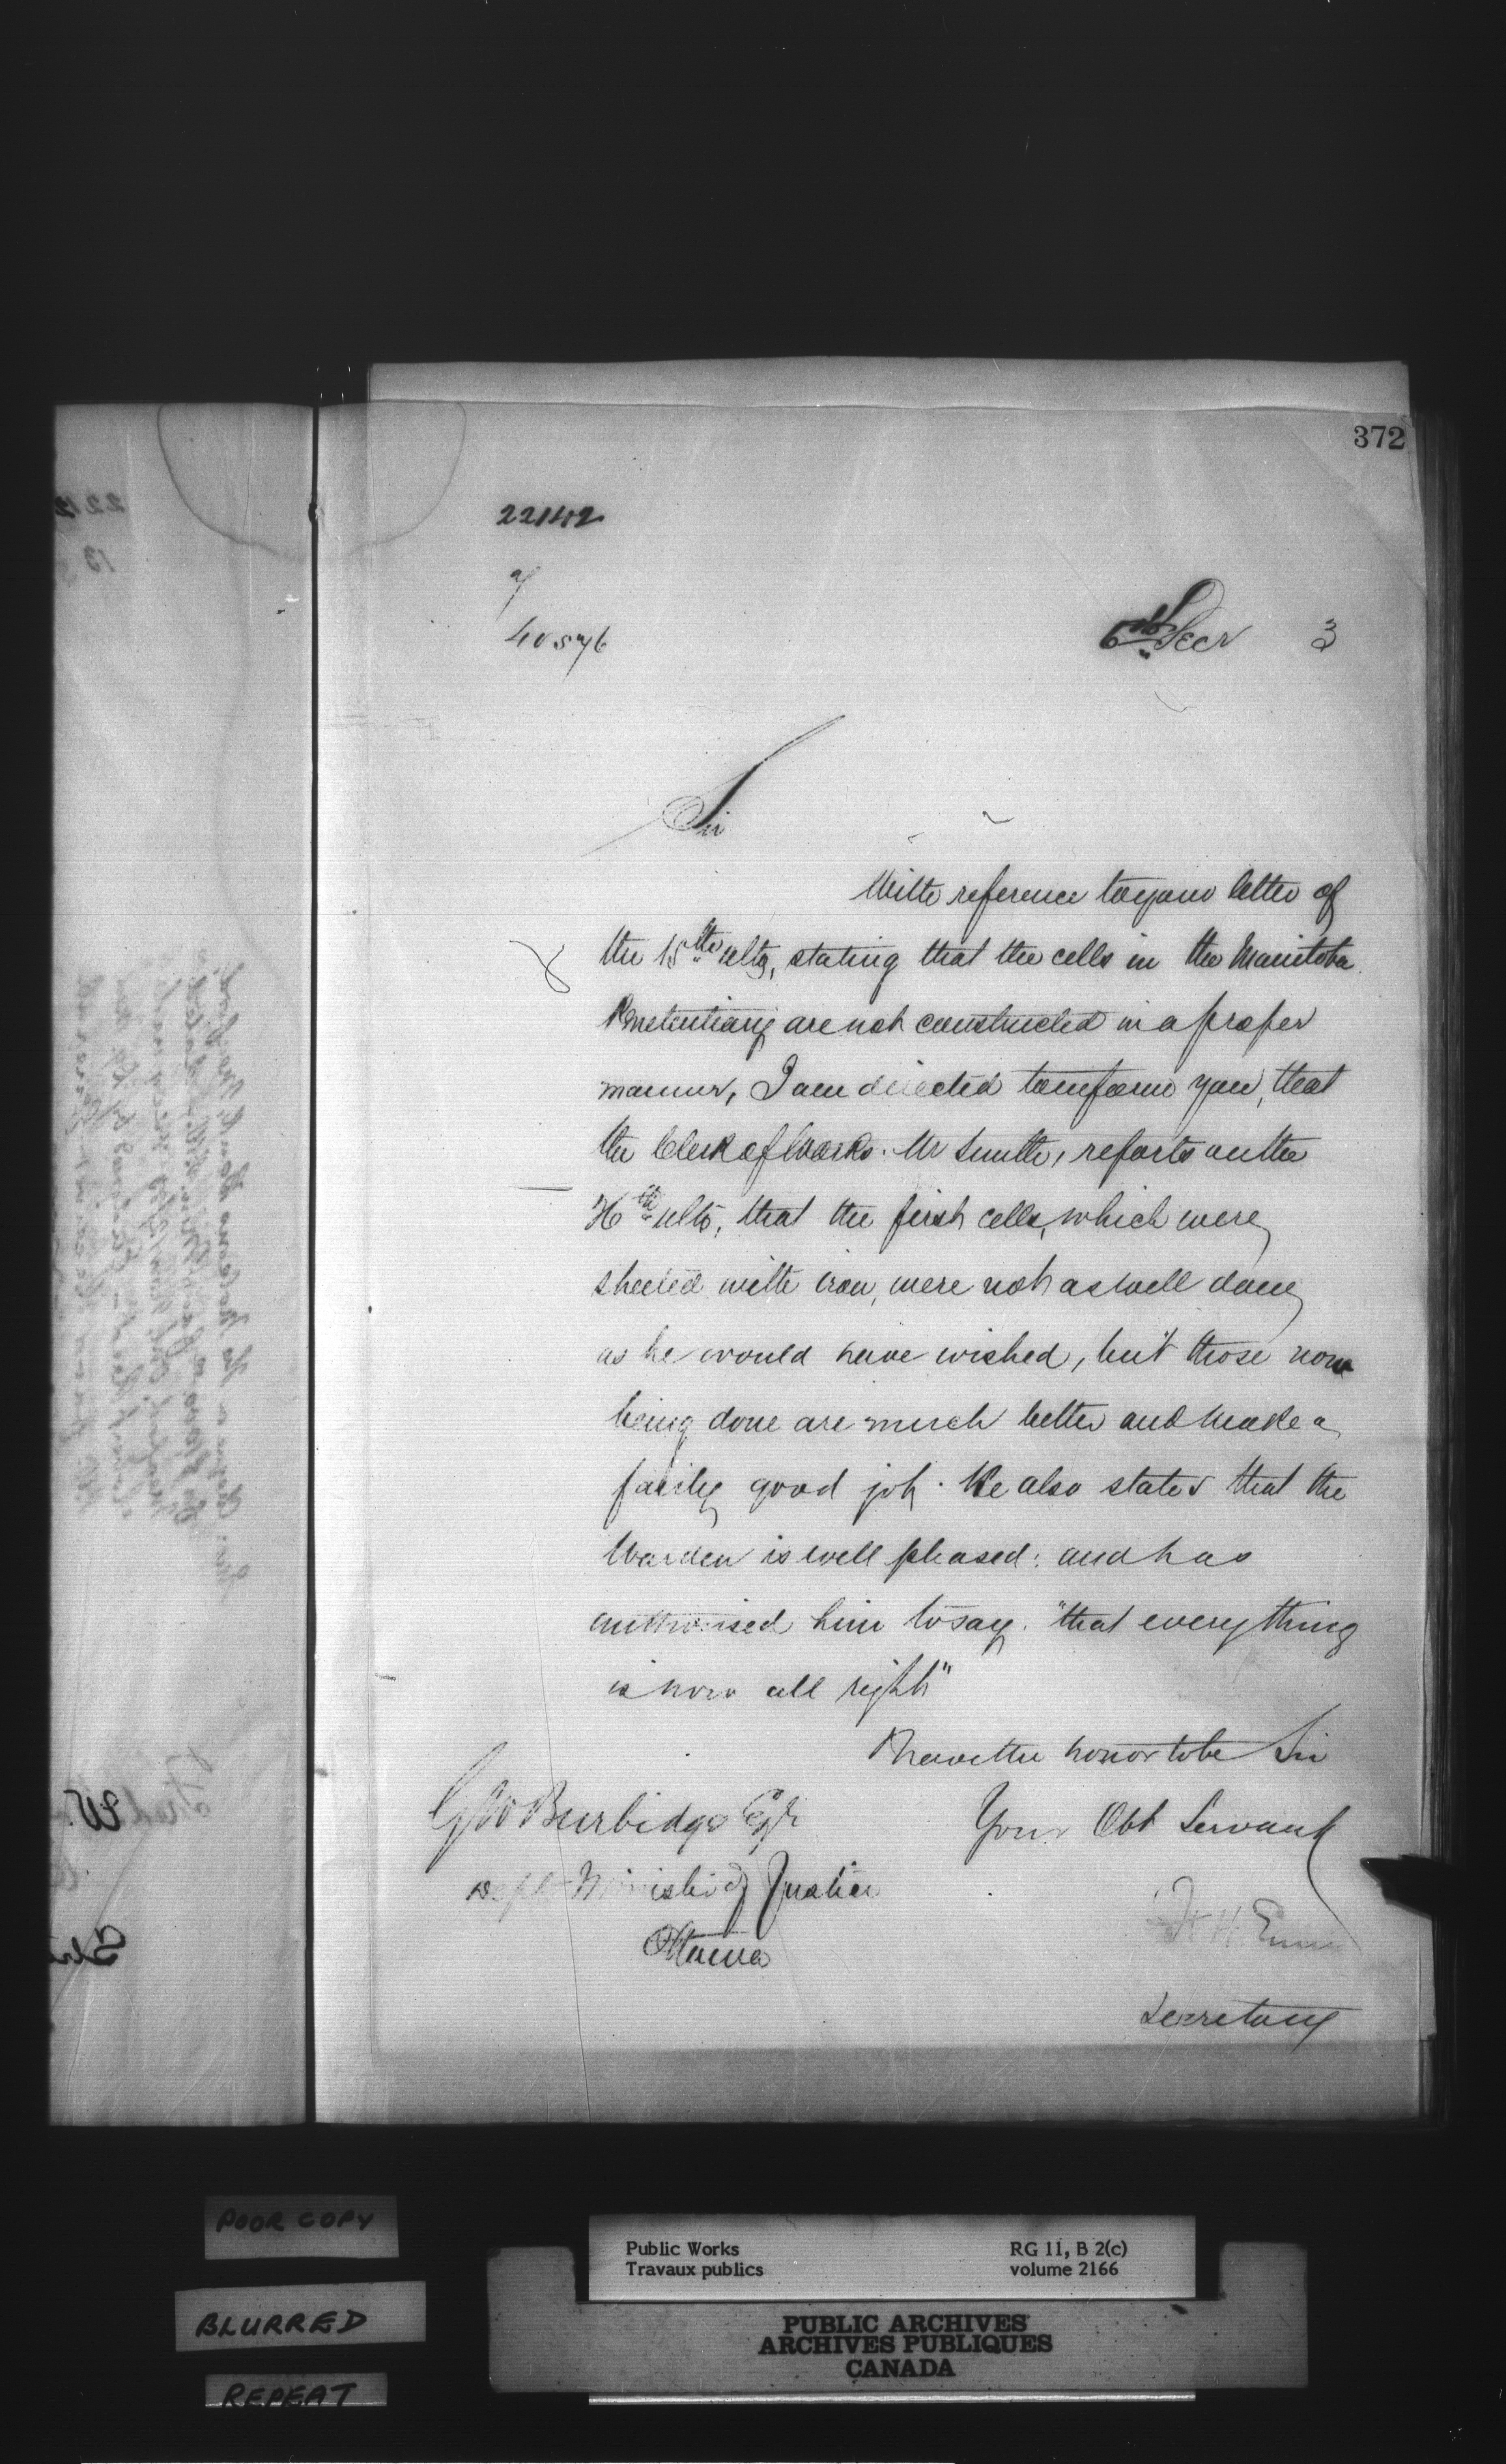 372
22142
a/
40576
6th Decr 3
Sir
With reference to your letter of
the 15th ulto, stating that the cells in the Manitoba
Penetentiary are not constructed in a proper
manner, I am directed to inform you, that
the Clerk of Works. Mr Smith, reports on the
26th ulto, that the first cells, which were
sheeted with iron, were not as well done
as he would have wished, but those now
being done are much better and make a
fairly good job. He also states that the
Warden is well pleased: and has
authorised him to say. "that everything
is now all right"
I have the honor to be Sir
Your Obt Servant
G W Burbidge Esqr
Depty Minister of Justice
Ottawa
F. H. Ennis
Secretary
POOR COPY
BLURRED
REPEAT
Public Works RG 11, B 2(c)
Travaux publics volume 2166
PUBLIC ARCHIVES
ARCHIVES PUBLIQUES
CANADA